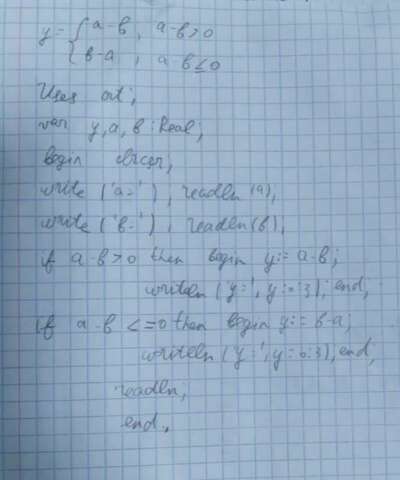 y = { a-b, a-b>0
b-a, a-b≤0
Uses crt;
var y, a, b : Real;
begin clrscr;
write ('a='); readln (a);
write ('b='); readln (b);
if a-b>0 then begin y:= a-b;
writeln ('y=', y:0:3); end;
if a-b <=0 then begin y:= b-a;
writeln ('y=', y:0:3); end;
readln;
end.